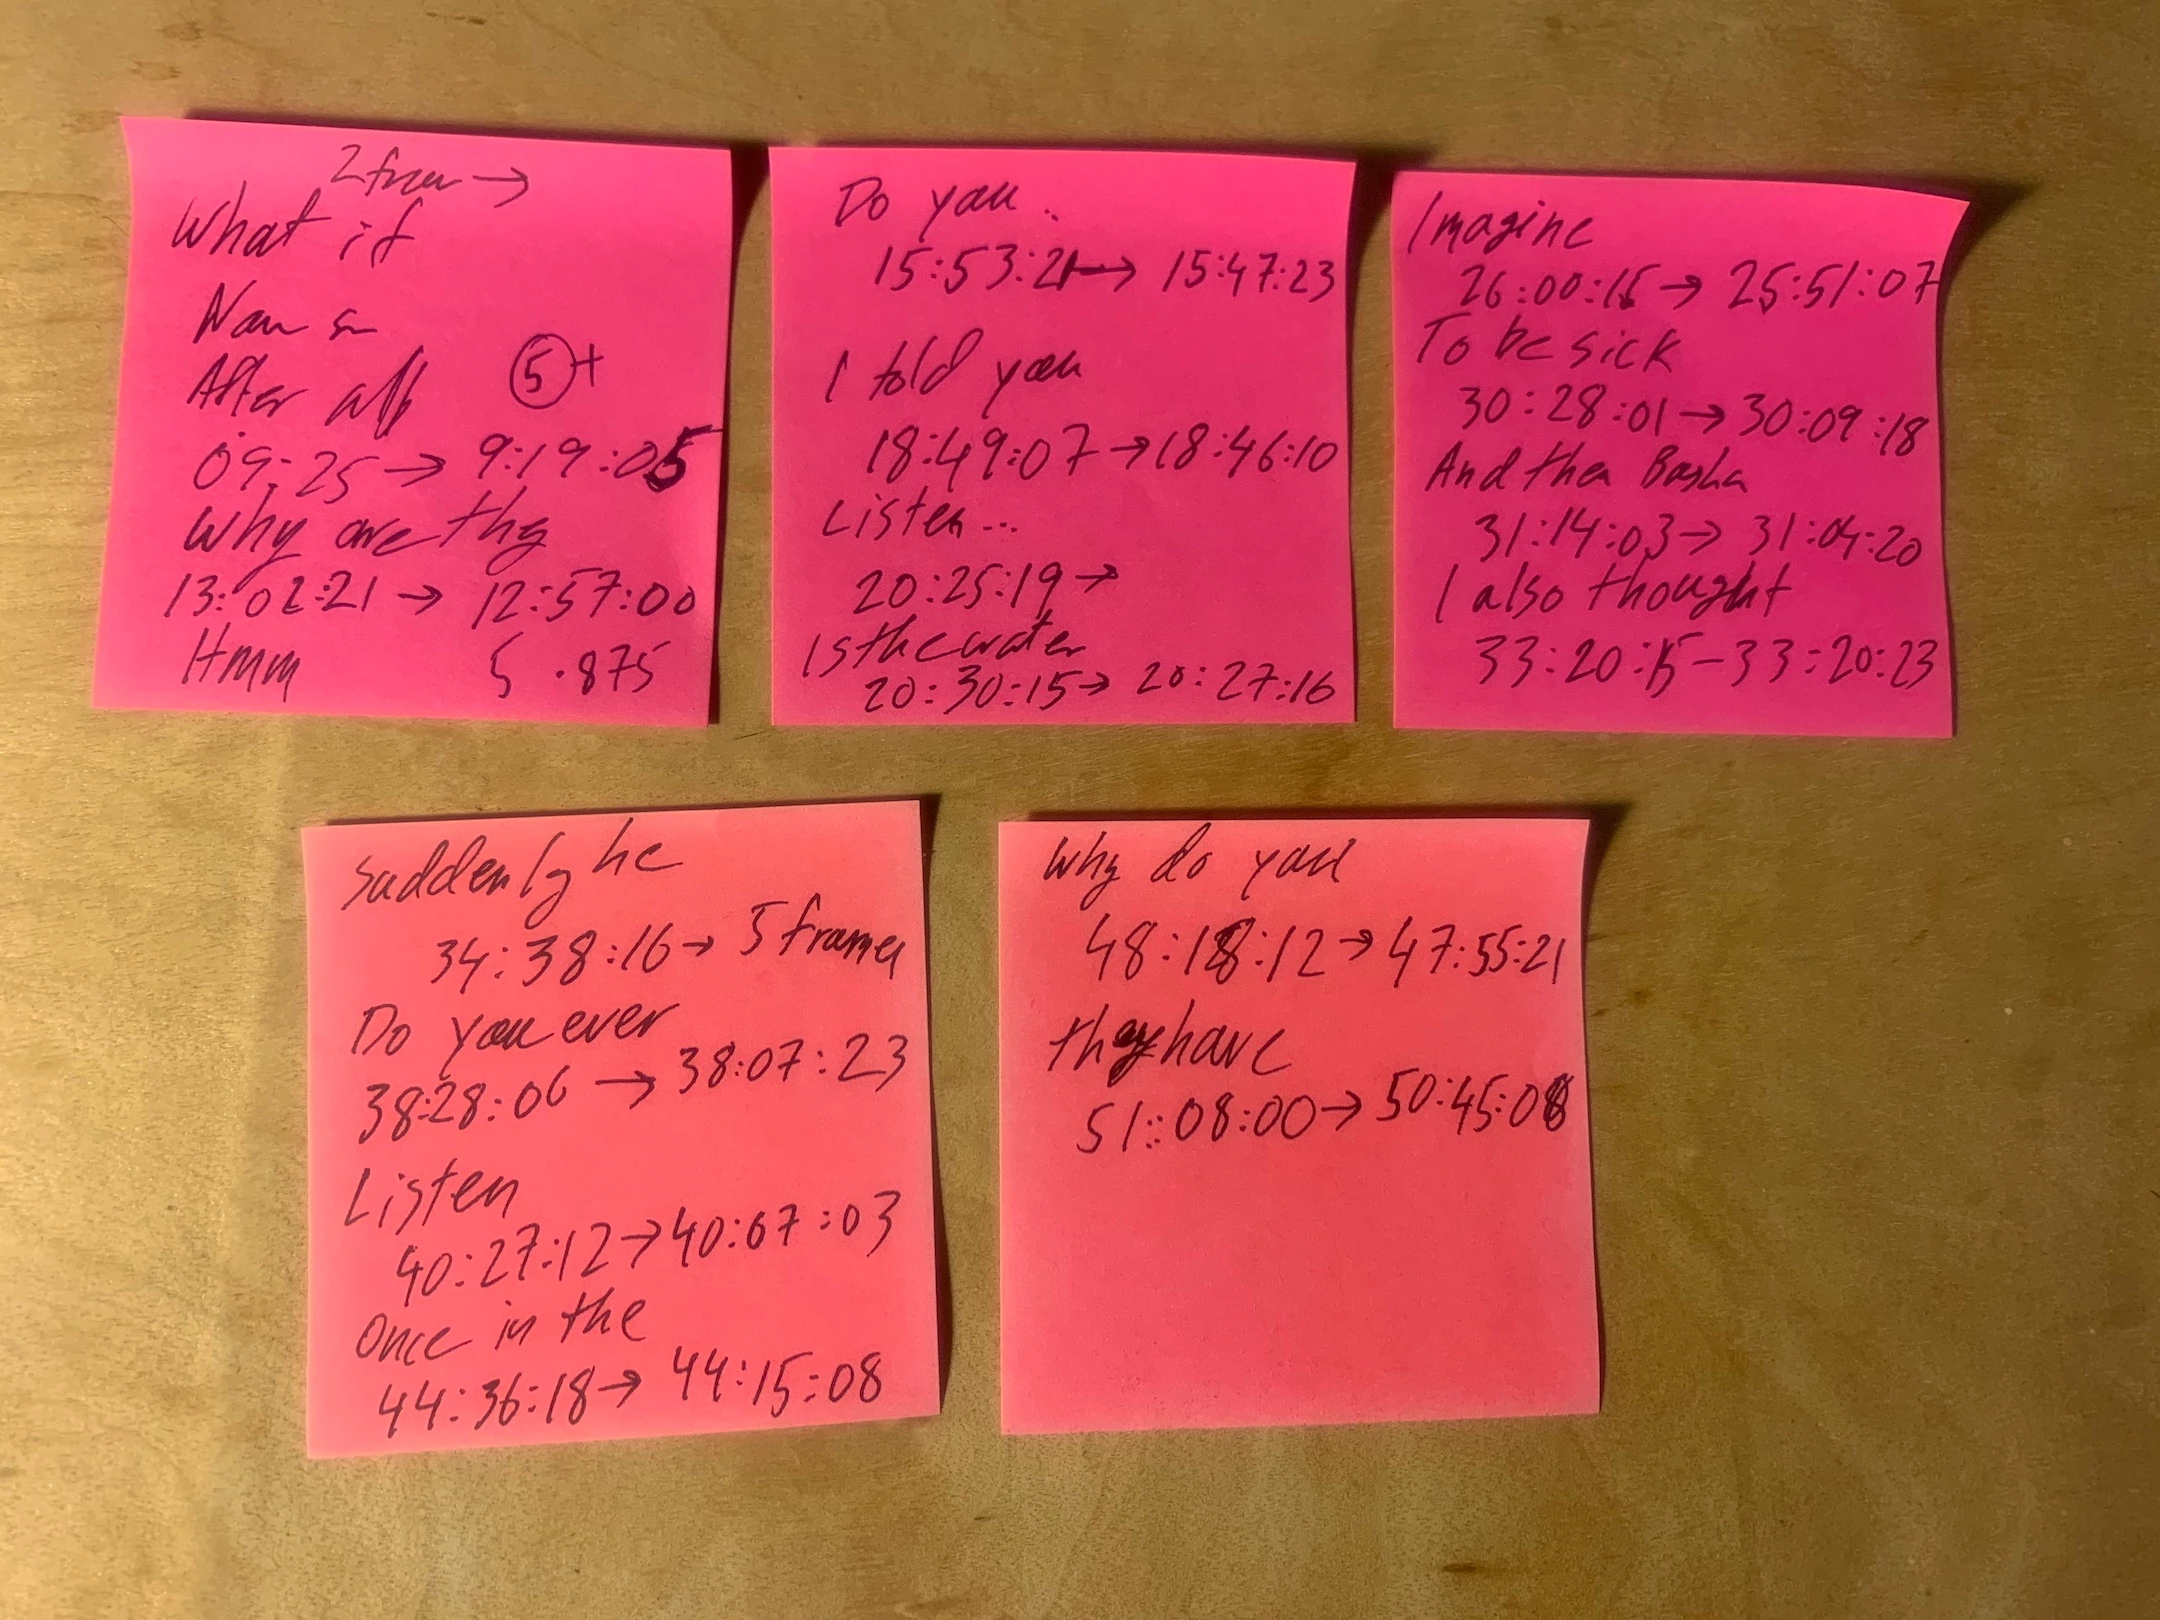 2 →
What if
After all
5+
09:25 → 9:19:05
Why are they
13:02:21 → 12:57:00
Hmm 5.875
Do you..
15:53:21 → 15:47:23
I told you
18:49:07 → 18:46:10
Listen...
20:25:19 →
Is the water
20:30:15 → 20:27:16
Imagine
26:00:15 → 25:51:07
To be sick
30:28:01 → 30:09:18
And then Basha
31:14:03 → 31:04:20
I also thought
33:20:15 – 33:20:23
Suddenly he
34:38:16 → 5 frames
Do you ever
38:28:06 → 38:07:23
Listen
40:27:12 → 40:07:03
Once in the
44:36:18 → 44:15:08
Why do you
48:18:12 → 47:55:21
they have
51:08:00 → 50:45:08